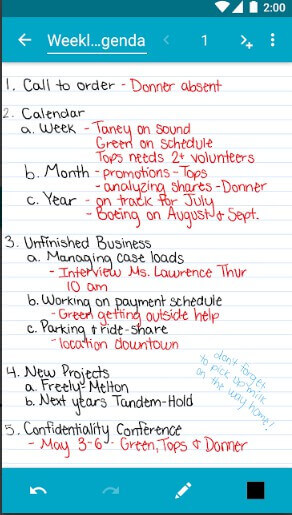 2:00
Weekl...genda
1
1. Call to order - Donner absent
2. Calendar
a. Week - Taney on sound
Green on schedule
Tops needs 2+ volunteers
b. Month - promotions - Tops
- analyzing shares - Donner
c. Year - on track for July
- Boeing on August & Sept.
3. Unfinished Business
a. Managing case loads
- Interview Ms. Lawrence Thur
10 am
b. Working on payment schedule
- Green getting outside help
c. Parking & ride-share
- location downtown
4. New Projects
a. Freely-Melton
b. Next years Tandem-Hold
don't forget
to pick up milk
on the way home!
5. Confidentiality Conference
- May 3-6 - Green, Tops & Donner